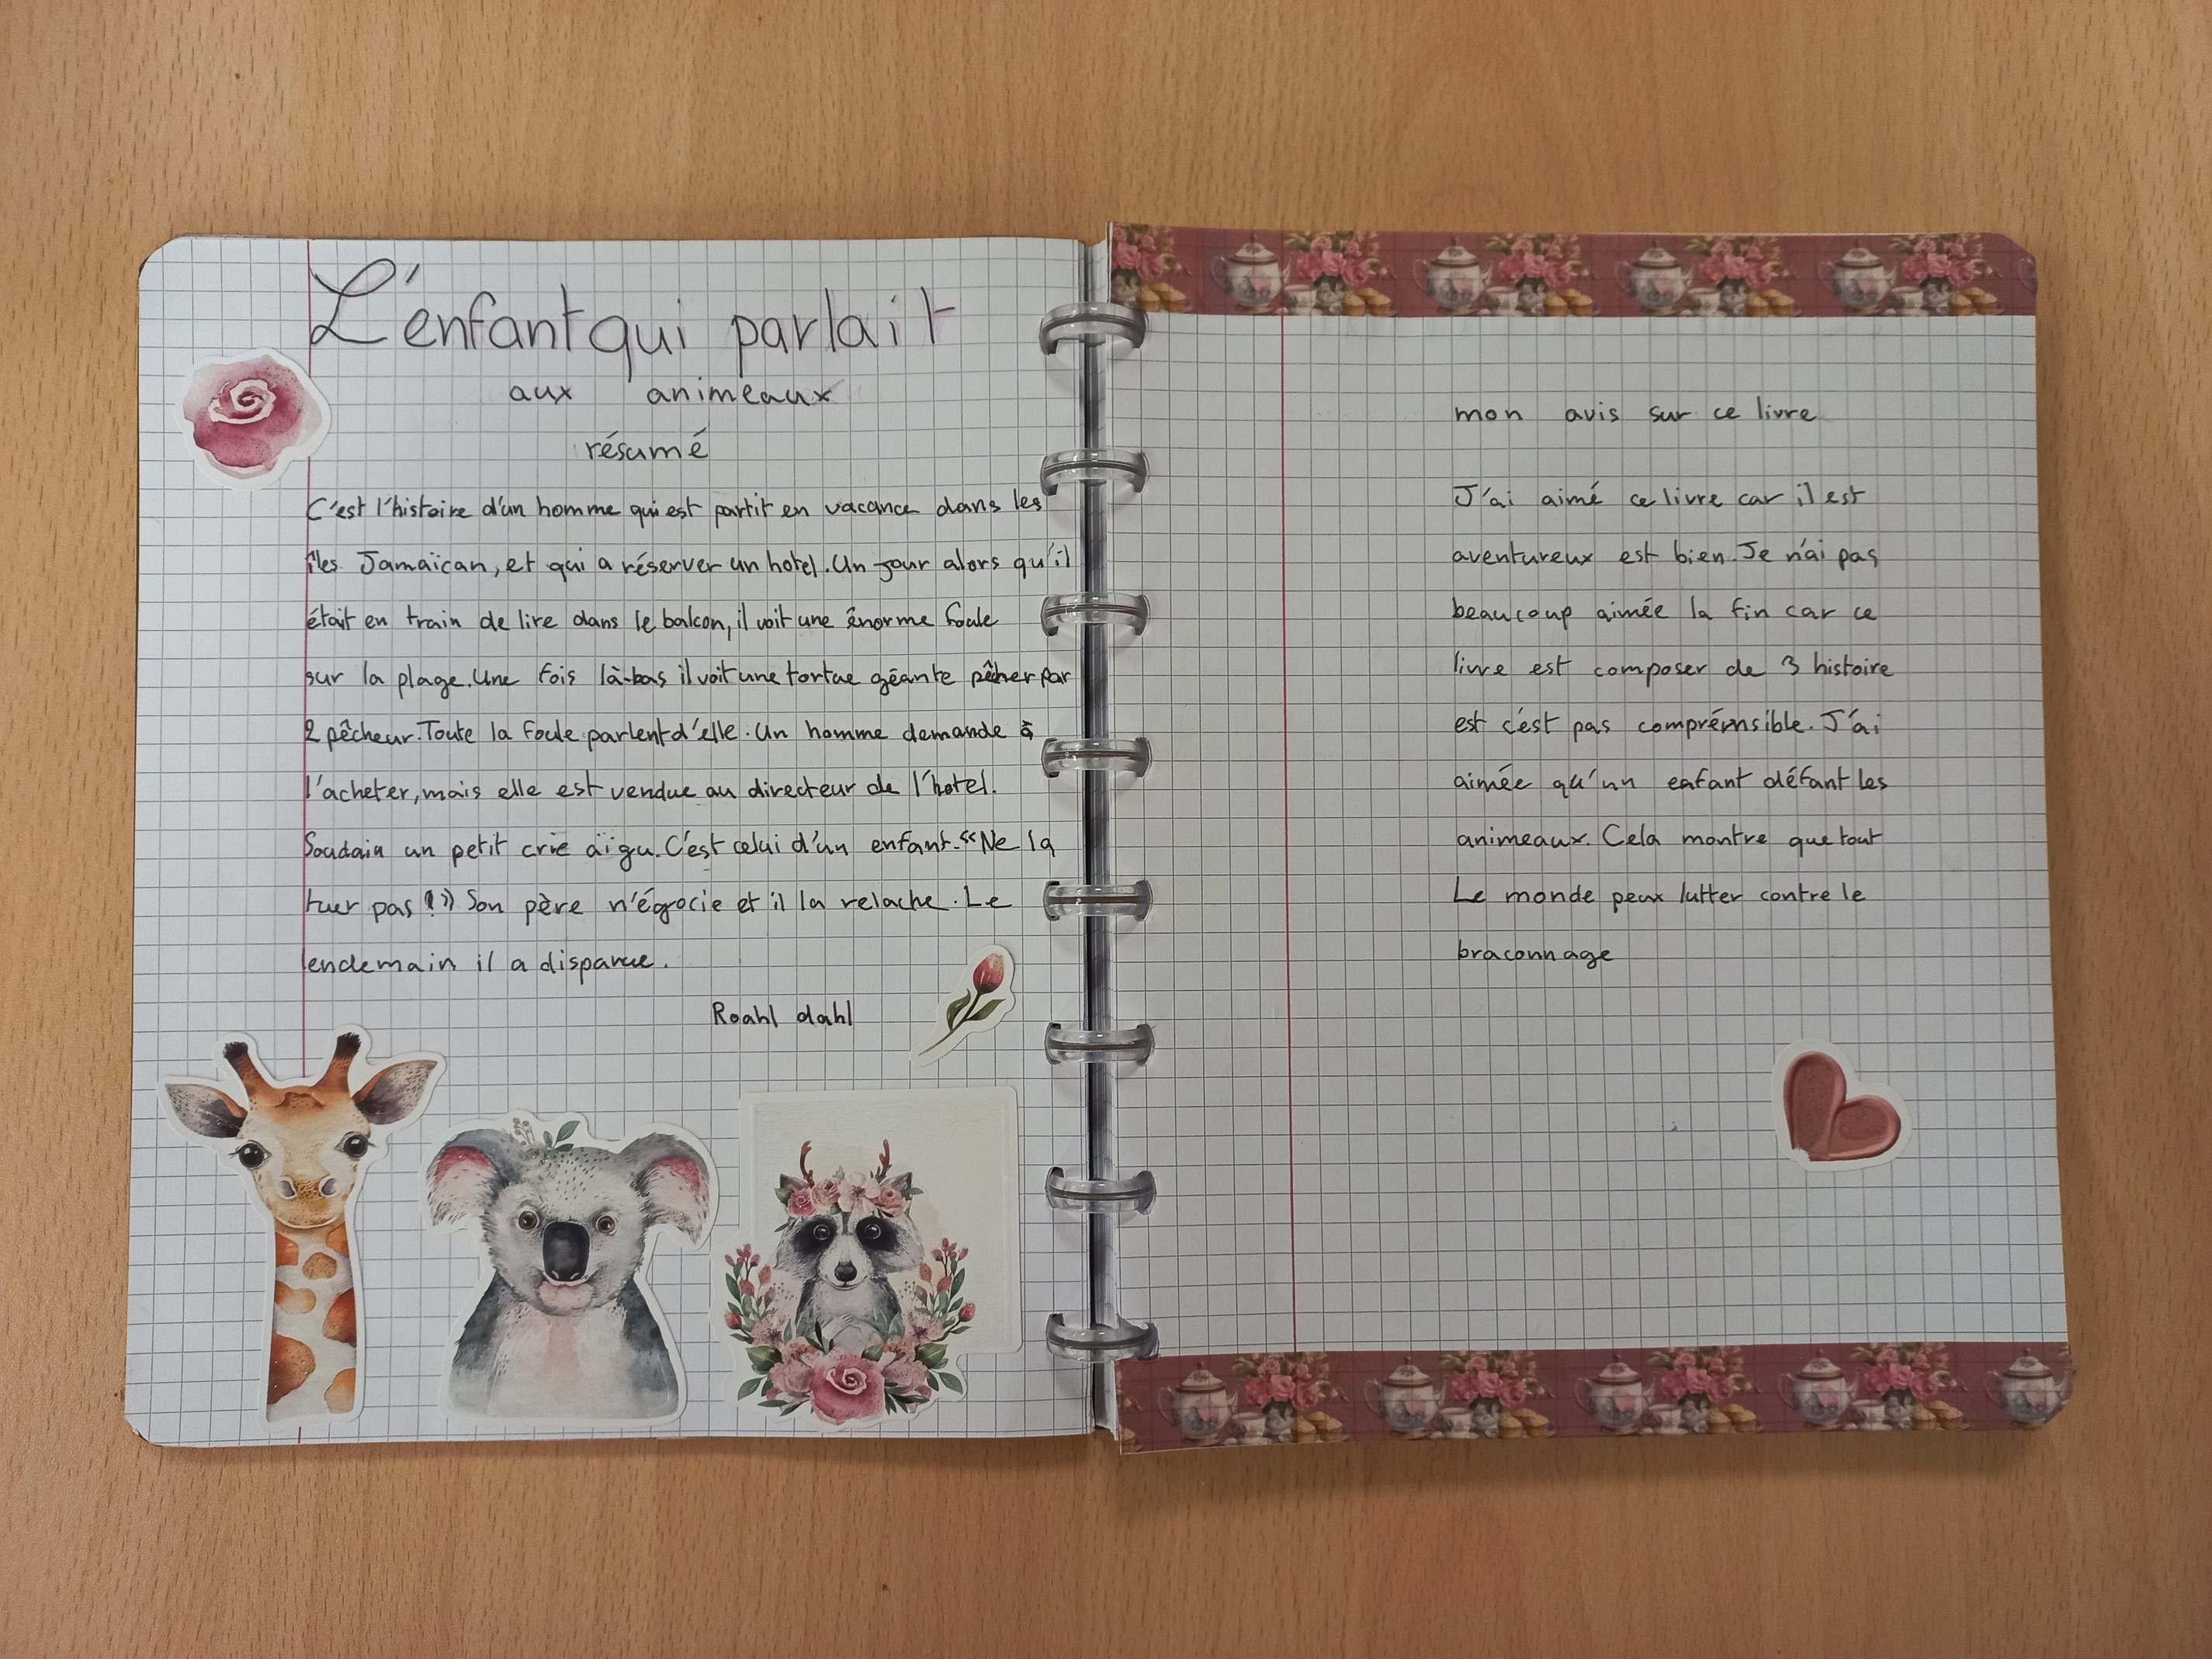 L'enfant qui parlait
aux animeaux
résumé
C'est l'histoire d'un homme qui est partit en vacance dans les
îles Jamaïcan, et qui a réserver un hotel. Un jour alors qu'il
était en train de lire dans le balcon, il voit une énorme foule
sur la plage. Une fois là-bas il voit une tortue géante pêcher par
2 pêcheur. Toute la foule parlent d'elle. Un homme demande à
l'acheter, mais elle est vendue au directeur de l'hotel.
Soudain un petit crie aïgu. C'est celui d'un enfant. "Ne la
tuer pas !" Son père n'égocie et il la relache. Le
lendemain il a disparue.
Roahl dahl
mon avis sur ce livre
J'ai aimé ce livre car il est
aventureux est bien. Je n'ai pas
beaucoup aimée la fin car ce
livre est composer de 3 histoire
est c'est pas comprémsible. J'ai
aimée qu'un enfant défant les
animeaux. Cela montre que tout
Le monde peux lutter contre le
braconnage